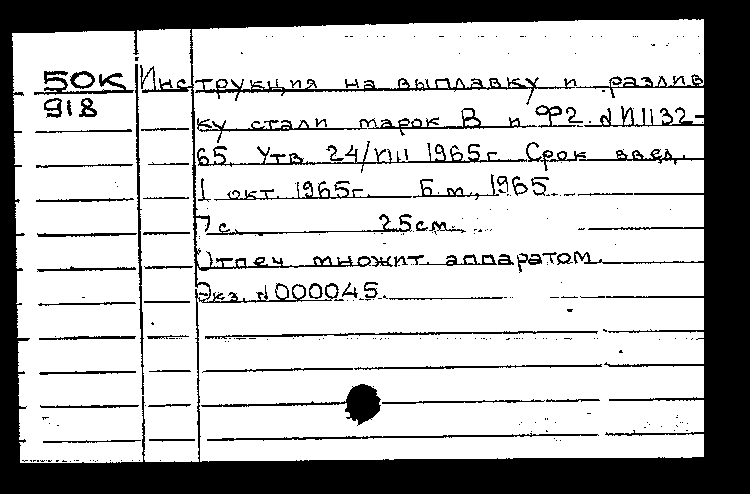 50К Инструкция на выплавку и разлив
918
ку стали марок В и ФР2. №И1132-
65. Утв. 24/VIII 1965г. Срок введ.
1 окт. 1965г. Б.м., 1965.
7 с. 25см.
Отпеч. множит. аппаратом.
Экз. №000045.